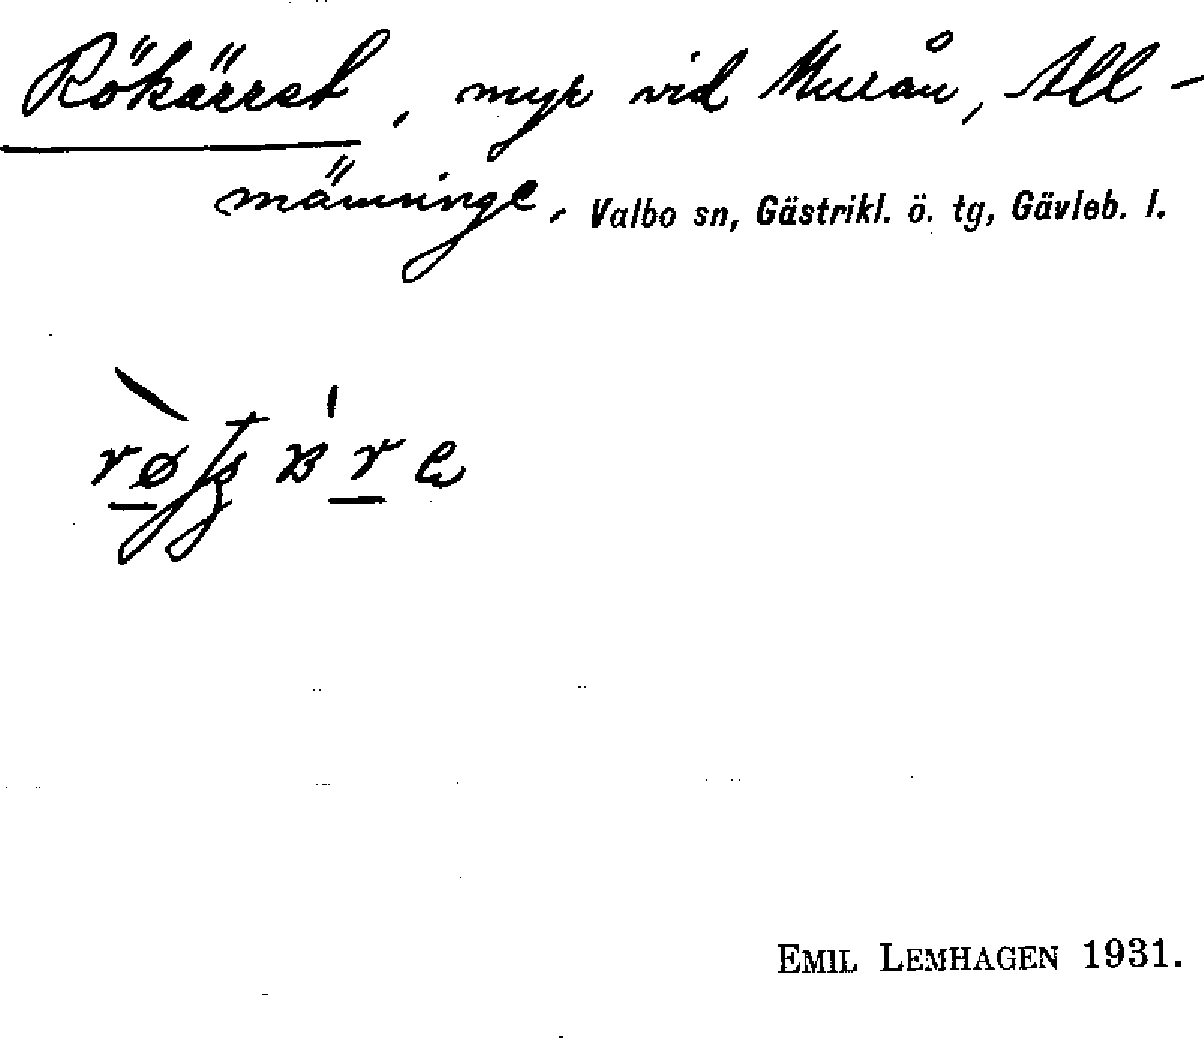 Rökärret, myr vid Murån, All-
männinge, Valbo sn, Gästrikl. ö. tg, Gävleb. l.
EMIL LEMHAGEN 1931.